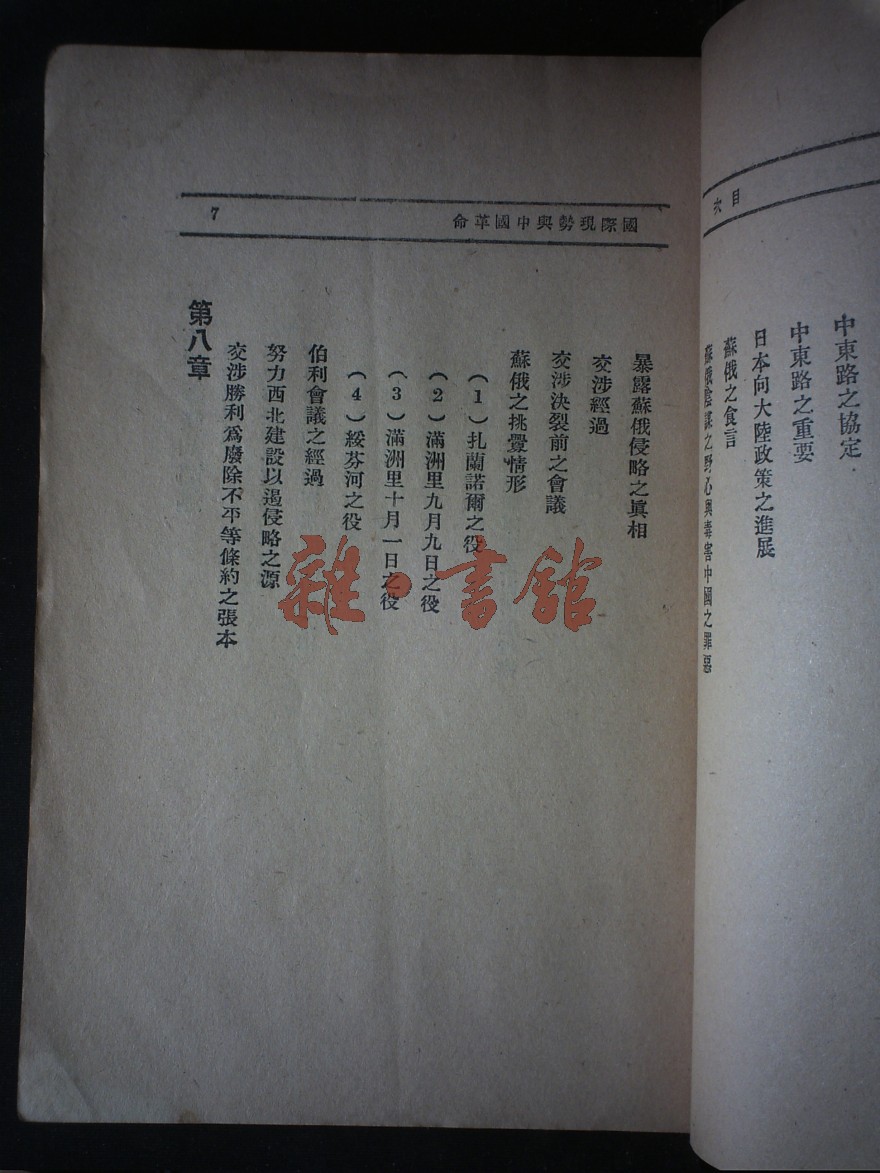 目次
中東路之協定
中東路之重要
日本向大陸政策之進展
蘇俄之食言
蘇俄陰謀之野心與毒害中國之罪惡
國際現勢與中國革命
7
暴露蘇俄侵略之眞相
交涉經過
交涉決裂前之會議
蘇俄之挑釁情形
（1）扎蘭諾爾之役
（2）滿洲里九月九日之役
（3）滿洲里十月一日之役
（4）綏芬河之役
伯利會議之經過
努力西北建設以遏侵略之源
交涉勝利爲廢除不平等條約之張本
第八章
雜·書館